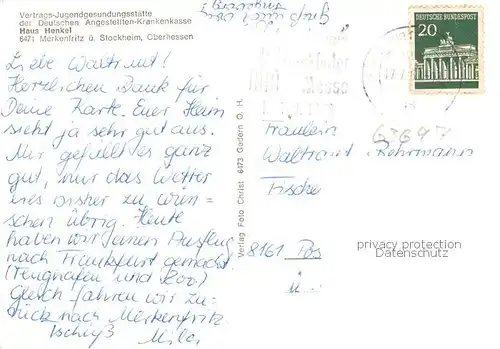 Vertrags-Jugendgesundungsstätte
der Deutschen Angestellten-Krankenkasse
Haus Henkel
6471 Merkenfritz ü. Stockheim, Oberhessen
Liebe Waltraut!
Herzlichen Dank für
Deine Karte. Euer Heim
sieht ja sehr gut aus.
Mir gefällt es ganz
gut, nur das Wetter
lies bisher zu wün=
schen übrig. Heute
haben wir einen Ausflug
nach Frankfurt gemacht
(Flughafen und Zoo)
Gleich fahren wir zu-
rück nach Merkenfritz
Tschüß
Verlag Foto Christ 6473 Gedern O. H.
DEUTSCHE BUNDESPOST
20
63697
Fräulein
Waltraut
Tische
8161
privacy protection
Datenschutz